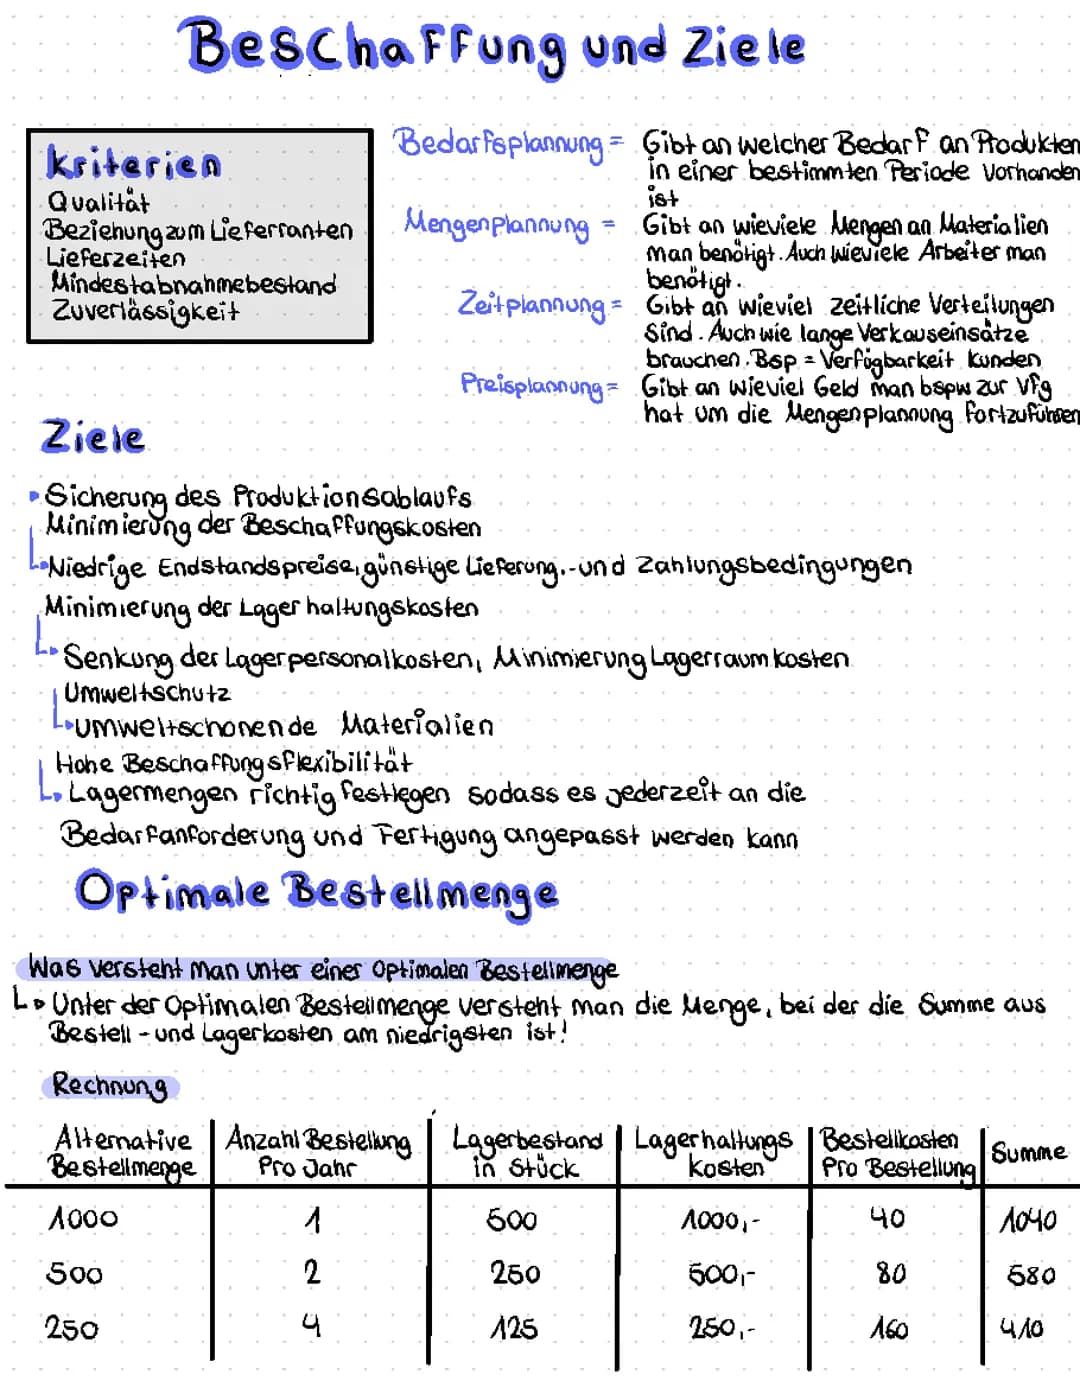 Beschaffung und Ziele
Kriterien
Qualität
Beziehung zum Lieferranten
Lieferzeiten
Mindestabnahmebestand
Zuverlässigkeit
Bedarfsplannung = Gibt an welcher Bedarf an Produkten
in einer bestimmten Periode vorhanden
ist
Mengenplannung = Gibt an wieviele Mengen an Materialien
man benötigt. Auch wieviele Arbeiter man
benötigt.
Zeitplannung = Gibt an wieviel zeitliche Verteilungen
sind. Auch wie lange Verkauseinsätze
brauchen. Bsp = Verfügbarkeit Kunden
Preisplannung = Gibt an wieviel Geld man bspw zur Vfg
hat um die Mengenplannung fortzuführen
Ziele
Sicherung des Produktionsablaufs
Minimierung der Beschaffungskosten
Niedrige Endstandspreise, günstige Lieferung,-und Zahlungsbedingungen
Minimierung der Lagerhaltungskosten
Senkung der Lagerpersonalkosten, Minimierung Lagerraumkosten
Umweltschutz
umweltschonende Materialien
Hohe Beschaffungsflexibilität
Lagermengen richtig festlegen sodass es jederzeit an die
Bedarfanforderung und Fertigung angepasst werden kann
Optimale Bestellmenge
Was versteht man unter einer Optimalen Bestellmenge
Unter der Optimalen Bestellmenge versteht man die Menge, bei der die Summe aus
Bestell-und Lagerkosten am niedrigsten ist!
Rechnung
Alternative Bestellmenge | Anzahl Bestellung Pro Jahr | Lagerbestand in Stück | Lagerhaltungs kosten | Bestellkosten Pro Bestellung | Summe
1000 | 1 | 500 | 1000,- | 40 | 1040
500 | 2 | 250 | 500,- | 80 | 580
250 | 4 | 125 | 250,- | 160 | 410